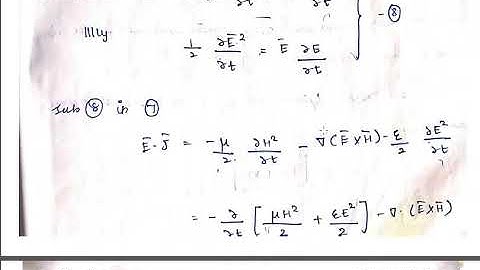 ∂t ∂t
IIIly
1/2 ∂Ē²/∂t = Ē ∂E/∂t } - ⑧
Sub ⑧ in ⑦
Ē.J̄ = -μ/2 ∂H²/∂t - ∇(Ē×H̄) - ε/2 ∂E²/∂t
= -∂/∂t [μH²/2 + εE²/2] - ∇.(Ē×H̄)